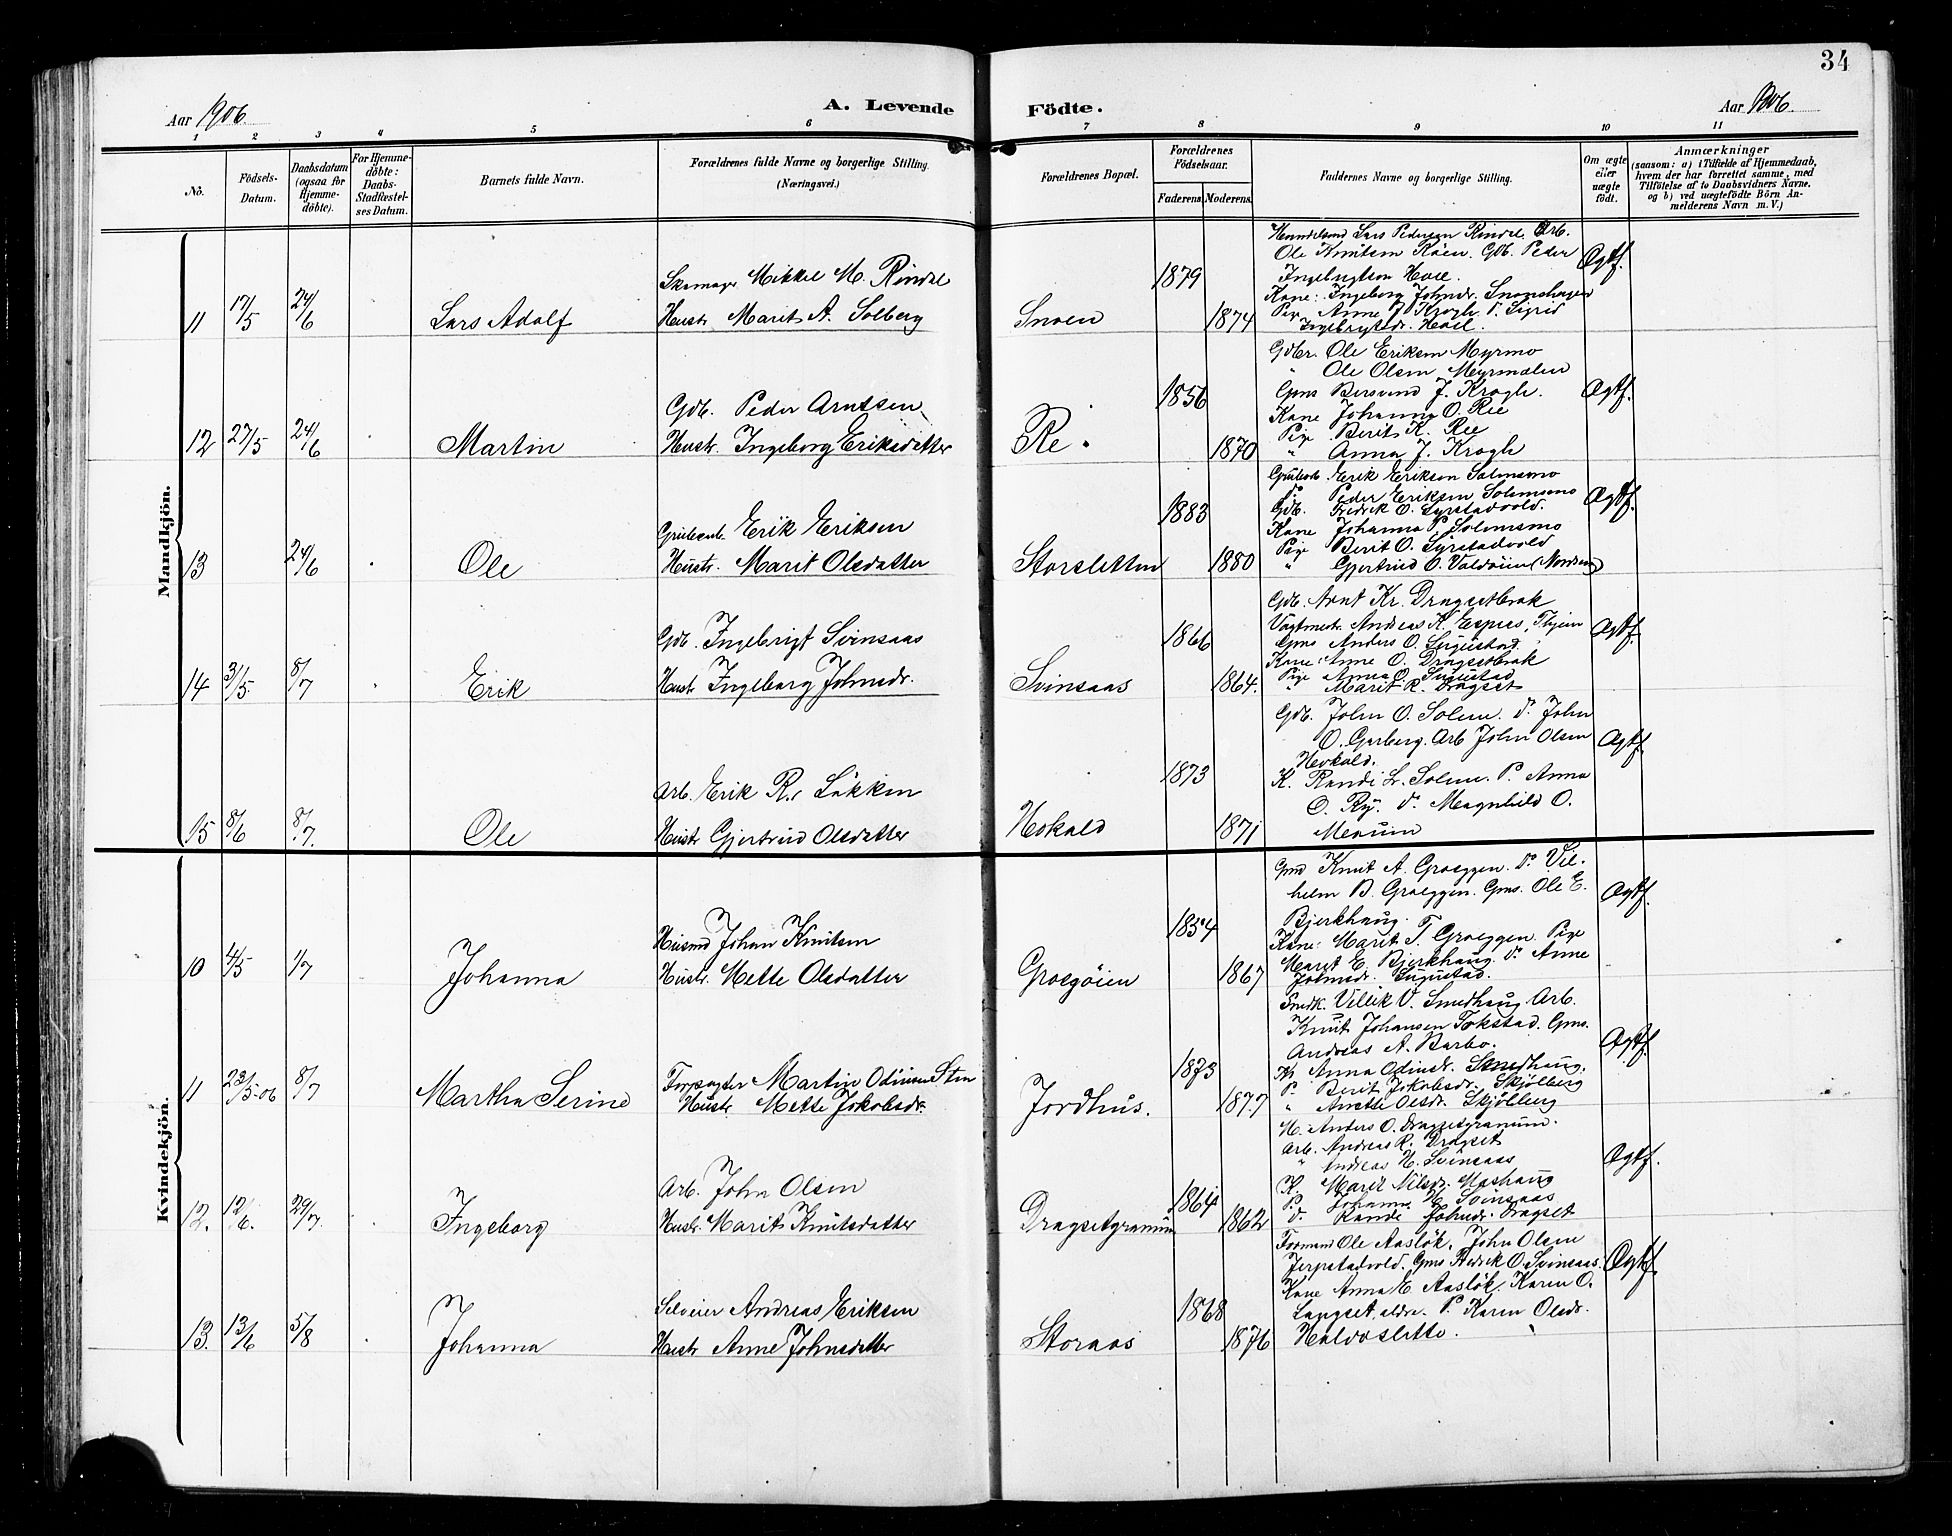 34
Aar 1906.
A. Levende Födte.
Aar 1906.
1 2 3 4 5 6 7 8 9 10 11
No.
Födsels-Datum.
Daabsdatum (ogsaa for Hjemme-döbte).
For Hjemme-döbte: Daabs-Stadfæstel-ses Datum.
Barnets fulde Navn.
Forældrenes fulde Navne og borgerlige Stilling.
(Næringsvei.)
Forældrenes Bopæl.
Forældrenes Födselsaar.
Faderens. Moderens.
Faddernes Navne og borgerlige Stilling.
Om ægte eller uægte födt.
Anmærkninger
(saasom: a) i Tilfælde af Hjemmedaab, hvem der har forrettet samme, med Tilföielse af to Daabsvidners Navne, og b) ved uægtefödte Börn An-melderens Navn m. V.)
Mandkjön.
11 17/5 24/6 Lars Adolf
Skomager Mikkel M. Rindal
Hustr. Marit A. Solberg
Snoen 1879 1874
Lars Pedersen Rindal. Arb.
Ole Knutsen Röen. Gdb. Peder
Ingebrigtsen Hoel.
Kone: Ingeborg Johnsdr. Snoenshagen
Pige Anne J. Krogh. P. Sigrid
Ingebrigtsdr. Hoel.
Ægtf.
12 27/5 24/6 Martin
Gdb. Peder Arntsen
Hustr. Ingeborg Eriksdatter
Re. 1856 1870
Gdbr. Ole Eriksen Myrmo
" Ole Olsen Myrmælen
Gms Bersvend J. Krogh.
Kone Johanna O. Ree
Pige Berit K. Ree
" Anna J. Krogh
Ægtf.
13 24/6 Ole
Grubearb. Erik Eriksen
Hustr. Marit Olsdatter
Storsletten 1883 1880
Grubearb. Erik Eriksen Solemsmo
Do Peder Eriksen Solemsmo
Gdb. Fredrik O. Syrstadvold.
Kone Johanna P. Solemsmo
Pige Berit O. Syrstadvold
" Gjertrud O. Valdöien
Ægtf.
14 31/5 8/7 Erik
Gdb. Ingebrigt Svinsaas
Hustr Ingeborg Johnsdr.
Svinsaas 1866 1864.
Gdb. Arnt Kr. Dragsetbrak
Vagtmestr. Andreas K. Espaas, Thjem
Gms Anders O. Sugustad.
Kone: Anne O. Dragsetbrak
Pige Anne O. Sugustad
" Marit R. Dragset
Ægtf.
15 8/6 8/7. Ole
Arb. Erik R. Lökken
Hustr Gjertrud Olsdatter
Hokald 1873 1871
Gdb. John O. Solem. Do John
O. Garberg. Arb John Olsen
Hokald.
K. Randi L. Solem. P. Anna
O. Ry. Do Magnhild O.
Moum
Ægtf.
Kvindekjön.
10 4/5 1/7 Johanna
Husmd Johan Knutsen
Hustr. Mette Olsdatter
Groegöien 1854 1867
Gmd Knut A. Groeggen. Do Vil-
helm B. Groeggen. Gms. Ole E.
Bjerkhaug.
Kone: Marit T. Groeggen. Pige
Marit E. Bjerkhaug. Do Anne
Johnsdr. Sugustad.
Ægtf.
11 23/5-06 8/7 Martha Serine
Forpagter Martin Odinsen Sten
Hustr Mette Jakobsdr.
Jordhus. 1873 1877
Smedk. Villik V. Smedhaug Arb.
Knut Johansen Tokstad. Gms.
Andreas A. Barbo.
K. Anna Odinsdr. Smedhaug.
P. Berit Jakobsdr. Skjölberg
" Anette Olsdr. Skjölberg
Ægtf.
12. 12/6. 29/7. Ingeborg
Arb. John Olsen
Hustr. Marit Knutsdatter
Dragsetgranum 1864 1862
H. Anders O. Dragsetgranum.
Arb. Andreas R. Dragset
" Andreas H. Svinsaas
K. Marit Nilsdr. Moshaug
P. Johanna H. Svinsaas
Do Randi Johnsdr. Dragset
Ægtf.
13. 13/6 5/8 Johanna
Selveier Andreas Eriksen
Hustr Anne Johnsdatter
Storaas 1868 1876
Formand Ole Aaslök. John Olsen
Jerpstadvold. Gms Fredrik O. Svinsaas.
Kone Anna E. Aaslök. Karen O.
Langset, eldre. P. Karen Olsdr.
Holdoslette.
Ægtf.